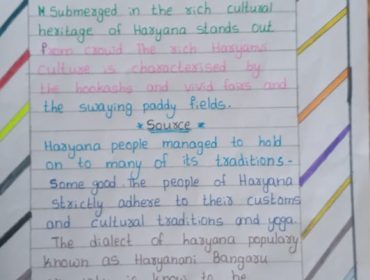 * Submerged in the rich cultural
heritage of Haryana stands out
From crowd The rich Haryana
Culture is characterised by
the hookahs and vivid fairs and
the swaying paddy fields.
* Source *
Haryana people managed to hold
on to many of its traditions -
Some good. The people of Haryana
strictly adhere to their customs
and cultural traditions and yoga.
The dialect of haryana populary
known as Haryanoni Bangaru
is know to be